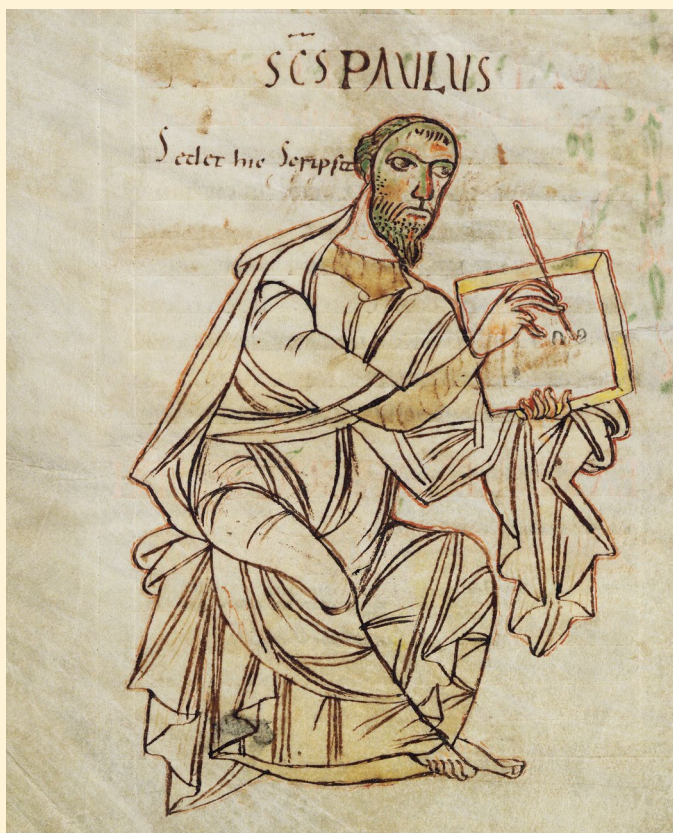 S̅C̅S PAULUS
Sedet hic Scripsit